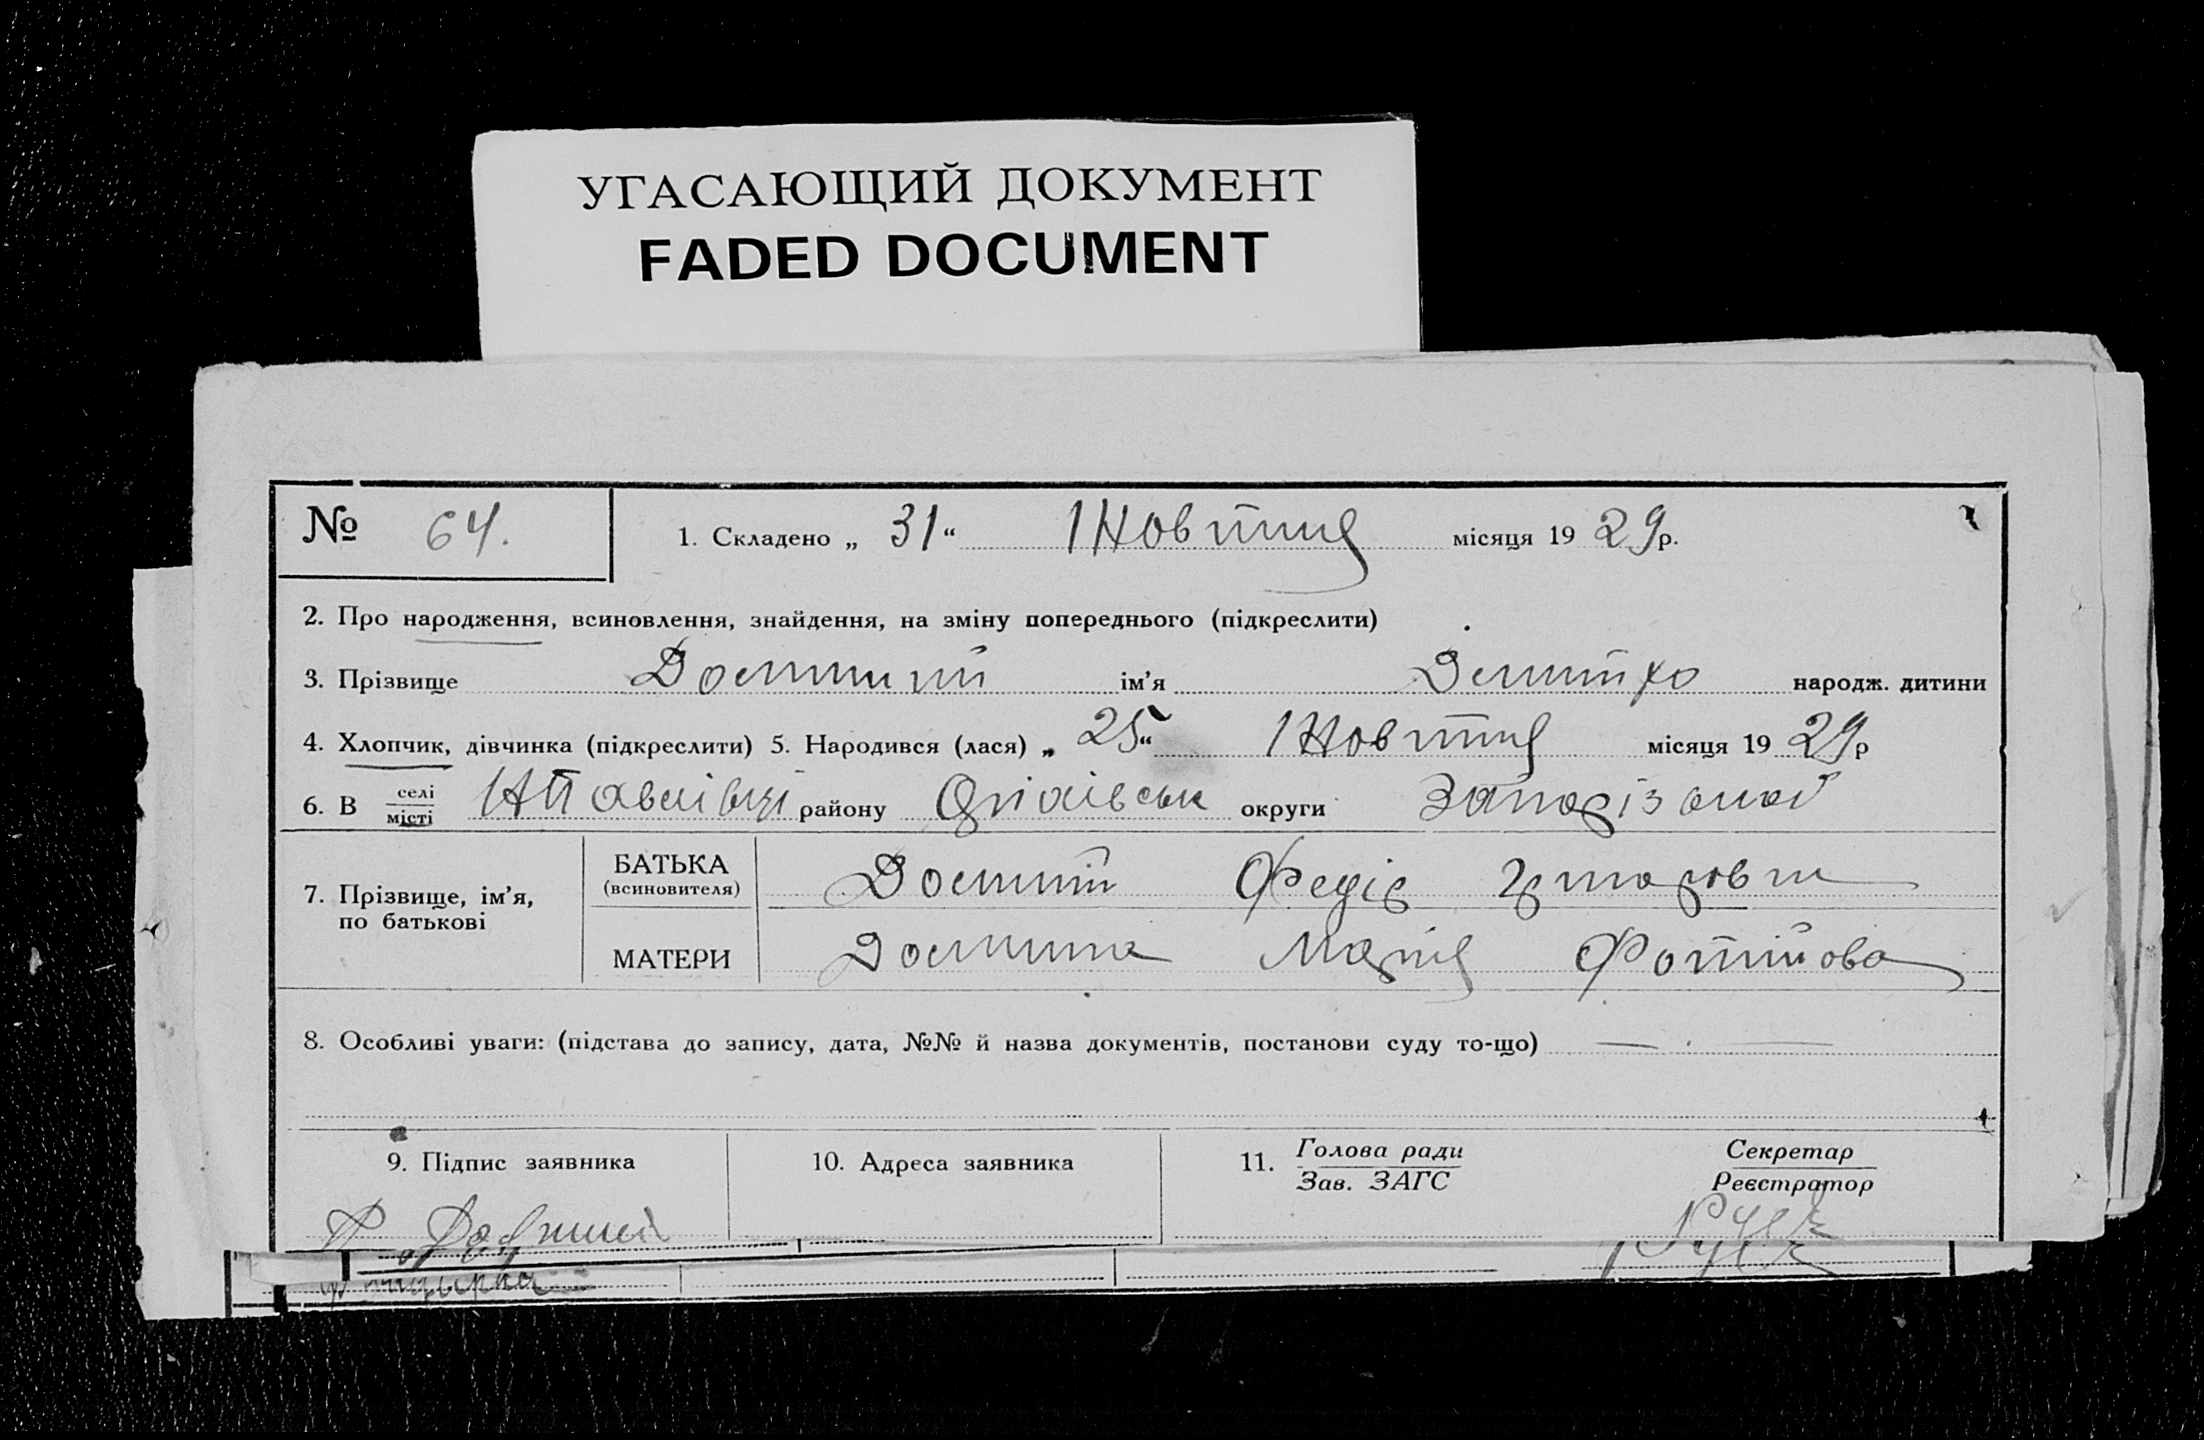 УГАСАЮЩИЙ ДОКУМЕНТ
FADED DOCUMENT
№ 64. 1. Складено „ 31 “ Жовтня місяця 19 29 р.
2. Про народження, всиновлення, знайдення, на зміну попереднього (підкреслити)
3. Прізвище ім’я Дмитро народж. дитини
4. Хлопчик, дівчинка (підкреслити) 5. Народився (лася) „ 25 “ Жовтня місяця 19 29 р
6. В селі місті району округи Запорізькой
7. Прізвище, ім’я, по батькові
БАТЬКА (всиновителя) Федір
МАТЕРИ Марія Фотійова
8. Особливі уваги: (підстава до запису, дата, №№ й назва документів, постанови суду то-що)
9. Підпис заявника 10. Адреса заявника 11. Голова ради Зав. ЗАГС Секретар Реєстратор